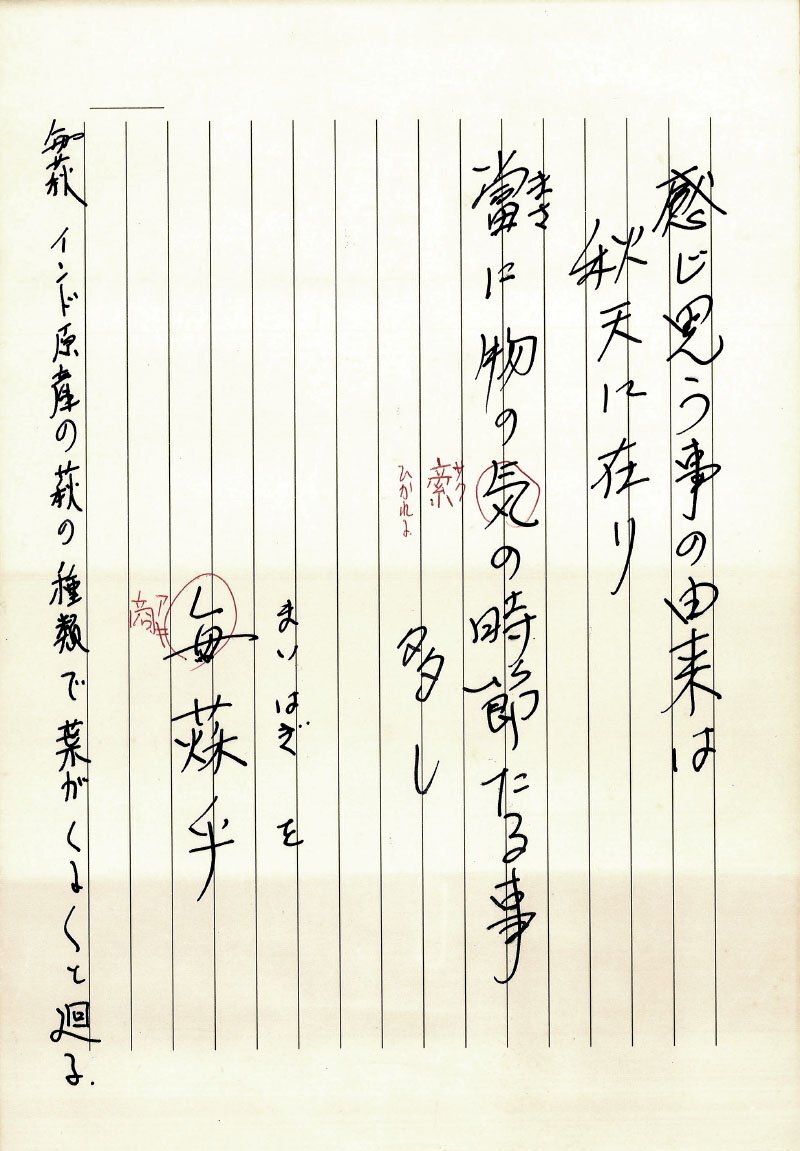 感じ思う事の由来は
秋天に在り
まさ
當に物の気の時節たる事
サク
索
ひかれよ
多し
まいはぎを
毎萩乎
アキ
商
インド原産の萩の種類で葉がくるくと廻る.